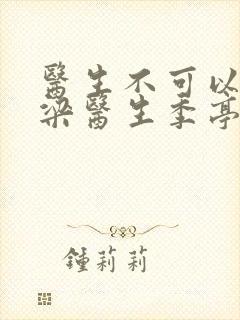 醫生不可以
梁醫生季亭
鍾莉莉